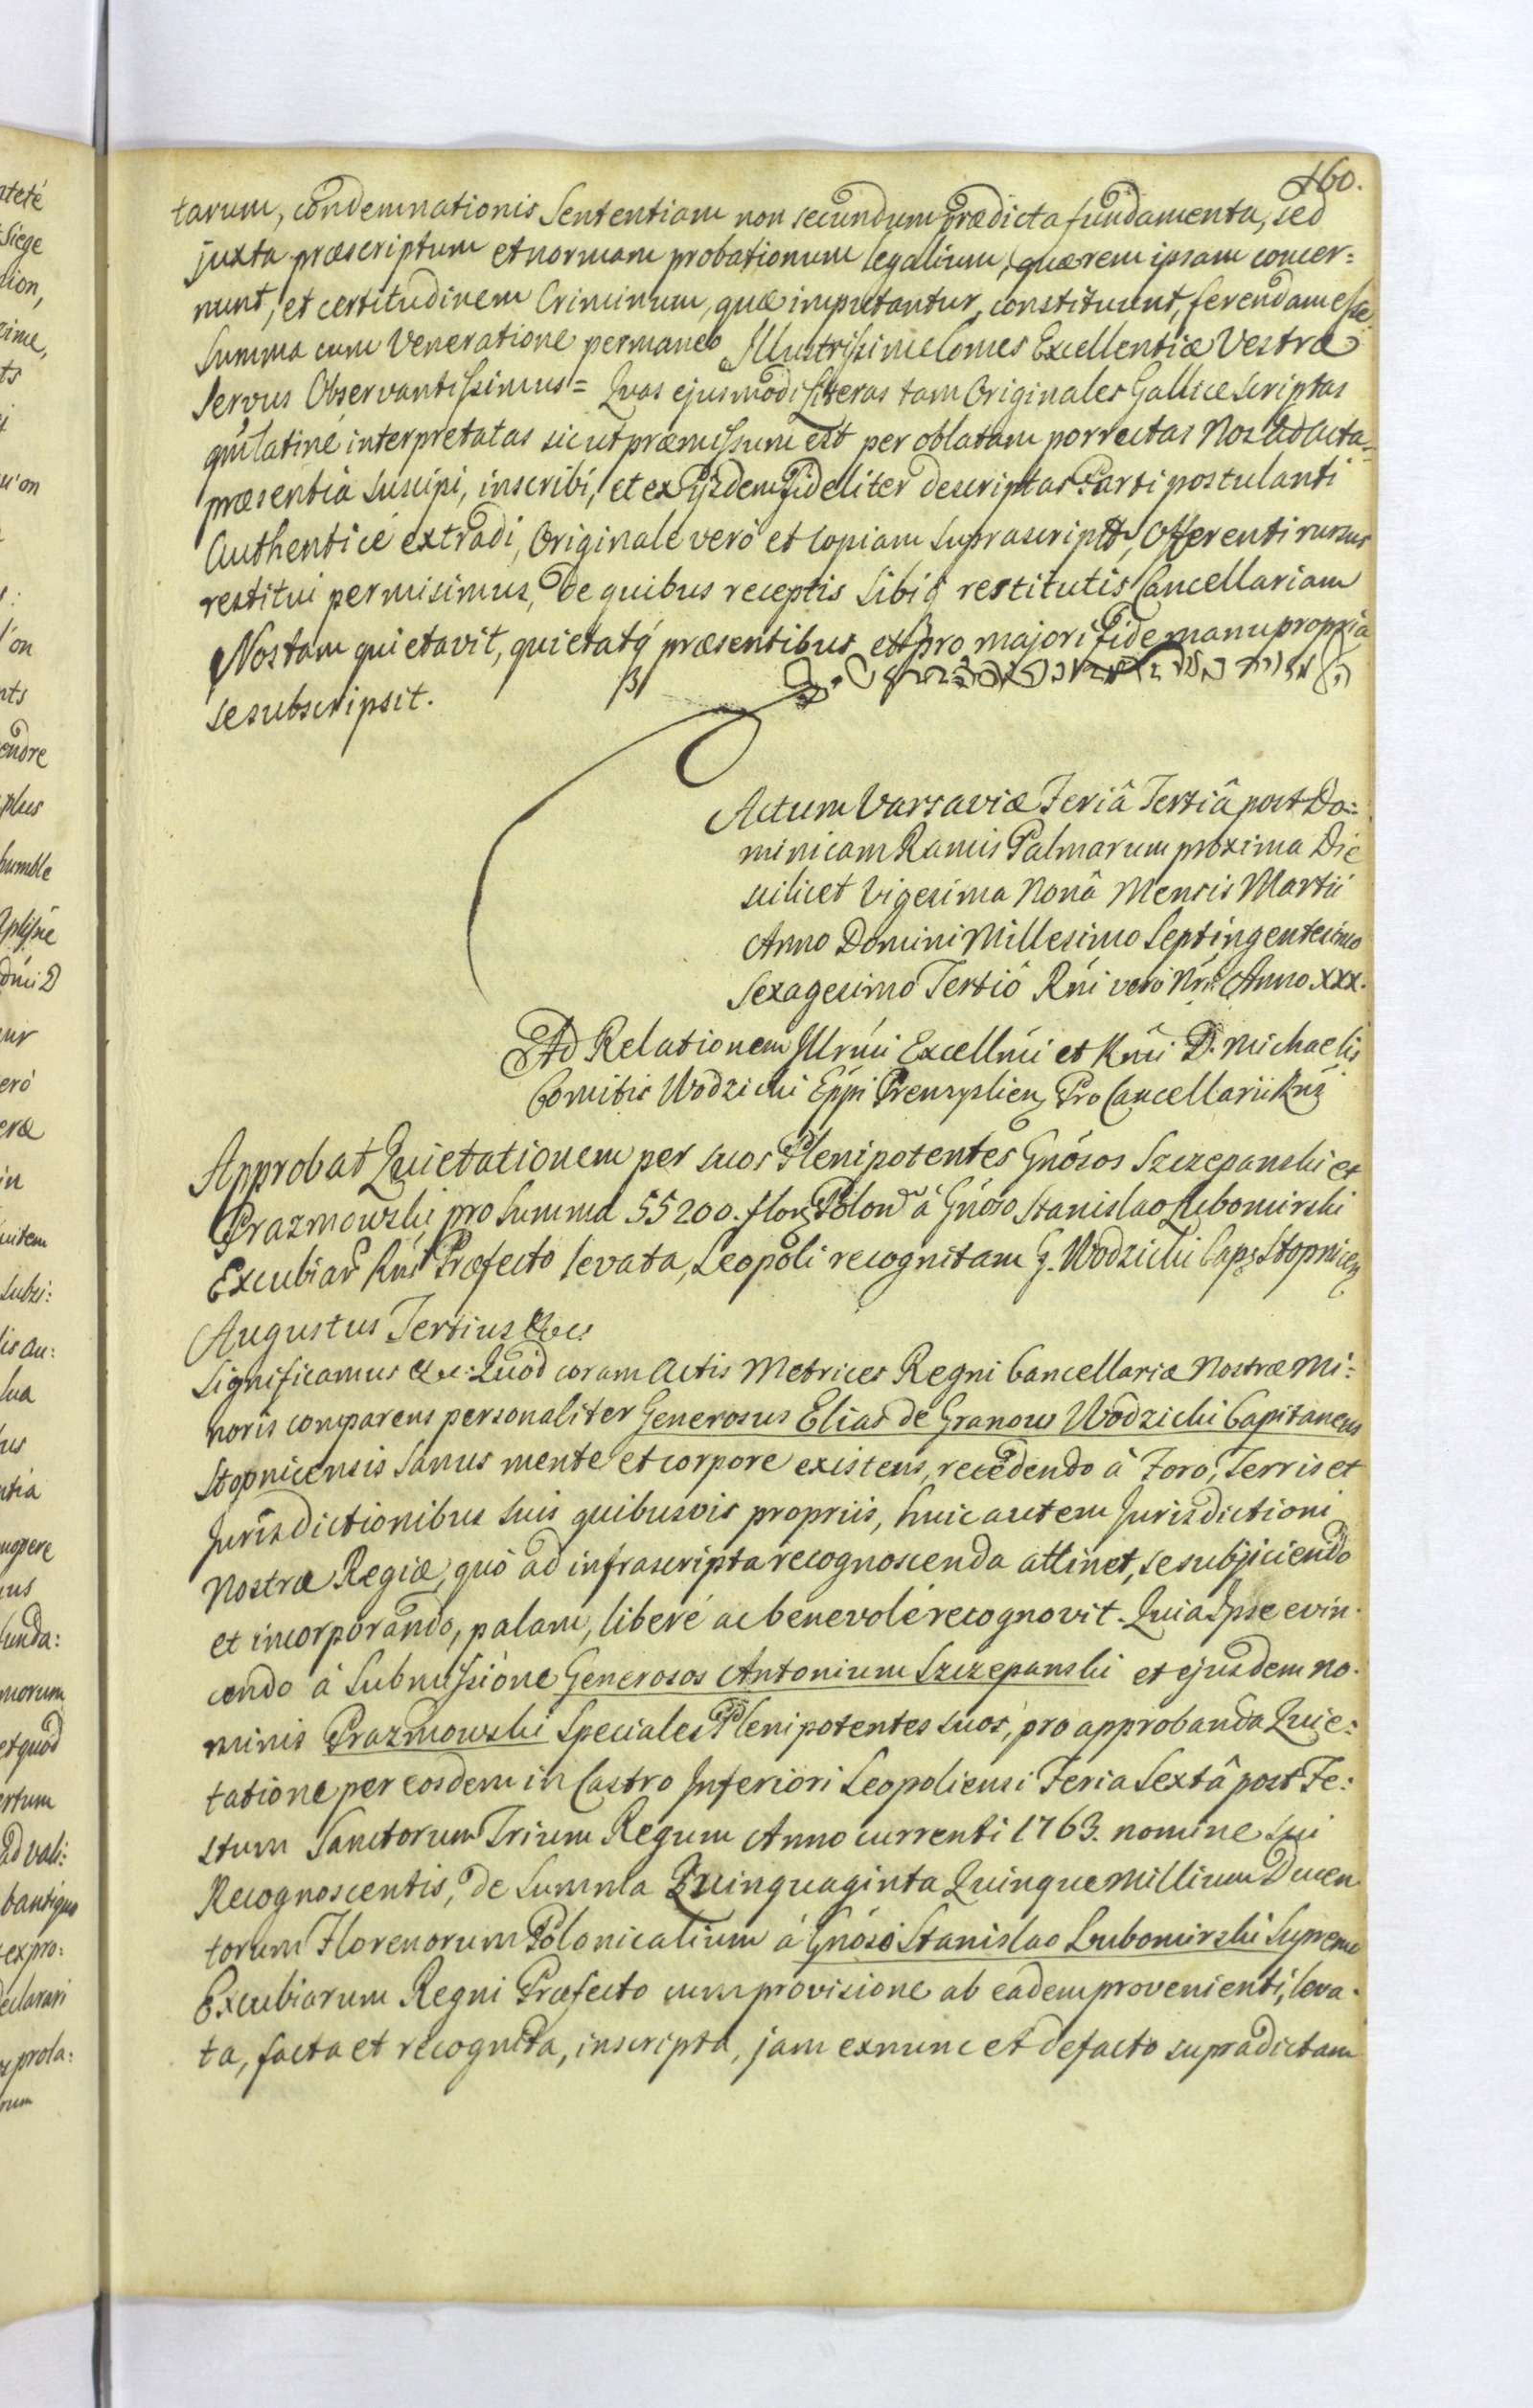 160.
tarum, condemnationis Sententiam non secundum prædicta fundamenta, sed
juxta præscriptum et normam probationum legalium, quæ rem ipsam concer=
nunt, et certitudinem Criminum, quæ imputantur, constituunt, ferendam esse
Summa cum Veneratione permaneo Illustrissime Comes Excellentiæ Vestræ
Servus Observantissimus = Quas ejusmodi Literas tam Originales Gallice scriptas
qm̃ latine interpretatas sicut præmissum est per oblatam porrectas Nos ad Acta
præsentia suscipi, inscribi, et ex ijsdem fideliter descriptas Parti postulanti
Authentice extradi, Originale vero et Copiam suprascript, Offerenti rursus
restitui permisimus, de quibus receptis sibiq́ restitutis Cancellariam
Nostam quietavit, quietatq́ præsentibus et pro majori fide manu propria
se subscripsit.
Actum Varsaviæ Feriâ Tertiâ post Do=
minicam Ramis Palmarum proxima Die
scilicet Vigesima Nonâ Mensis Martii
Anno Domini Millesimo Septingentesimo
Sexagesimo Tertiô Rńi vero Nri Anno XXX.
Ad Relationem Illrńi Excellńi et Rńi D. Michaelis
Comitis Wodzicki Eppi Premyslien, Pro Cancellarii Rni
Approbat Quietationem per suos Plenipotentes Gnósos Szczepanski et
Prazmowski, pro Summa 55200. flor. Polon à Gnóso Stanislao Lubomirski
Excubiar Rni Præfecto levata, Leopoli recognitam G. Wodzicki Cap. Stopnicen
Augustus Tertius &c
Significamus &c: Quòd coram Actis Metrices Regni Cancellariæ Nostræ Mi=
noris comparens personaliter Generosus Elias de Granow Wodzicki Capitaneus
Stopnicensis sanus mente et corpore existens, recedendo à Foro, Terris et
Jurisdictionibus suis quibusvis propriis, huic autem Jurisdictioni
Nostræ Regiæ, quò ad infrascripta recognoscenda attinet, se subjiciendo
et incorporando, palam, liberé ac benevolé recognovit. Quia Ipse evin=
cendo à Submissione Generosos Antonium Szczepanski et ejusdem no=
minis Prazmowski Speciales Plenipotentes suos, pro approbanda Quie=
tatione per eosdem in Castro Inferiori Leopoliensi Feria Sextâ post Fe=
stum Sanctorum Trium Regum Anno currenti 1763. nomine sui
Recognoscentis, de Summa Quinquaginta Quinque Millium Ducen
torum Florenorum Polonicalium á Gnóso Stanislao Lubomirski Supremo
Excubiarum Regni Præfecto cum provisione ab eadem provenienti, leva=
ta, facta et recognita, inscripta, jam exnunc et de facto supradictam